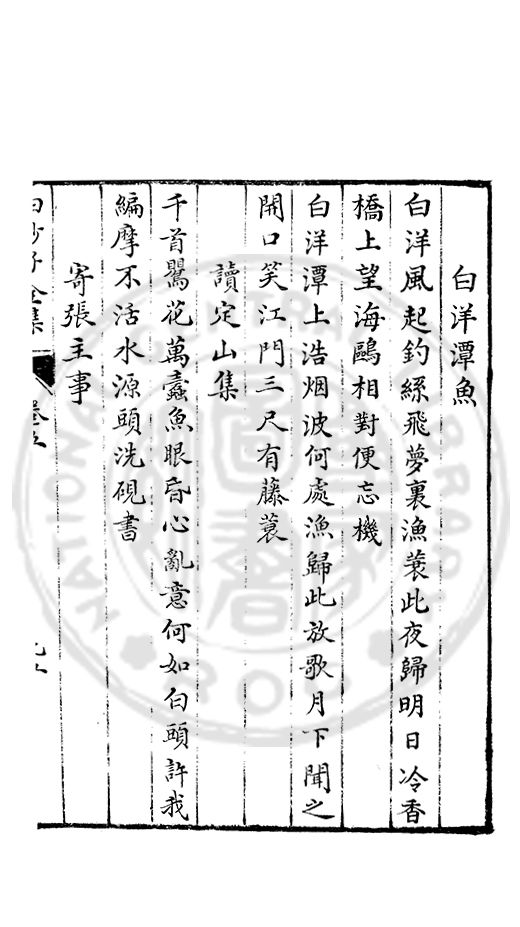 白洋潭魚
白洋風起釣絲飛夢裏漁蓑此夜歸明日冷香
橋上望海鷗相對便忘機
白洋潭上浩烟波何處漁歸此放歌月下聞之
開口笑江門三尺有藤蓑
讀定山集
千首鸎花萬蠹魚眼昏心亂意何如白頭許我
編摩不活水源頭洗硯書
寄張主事
白沙子全集
卷五